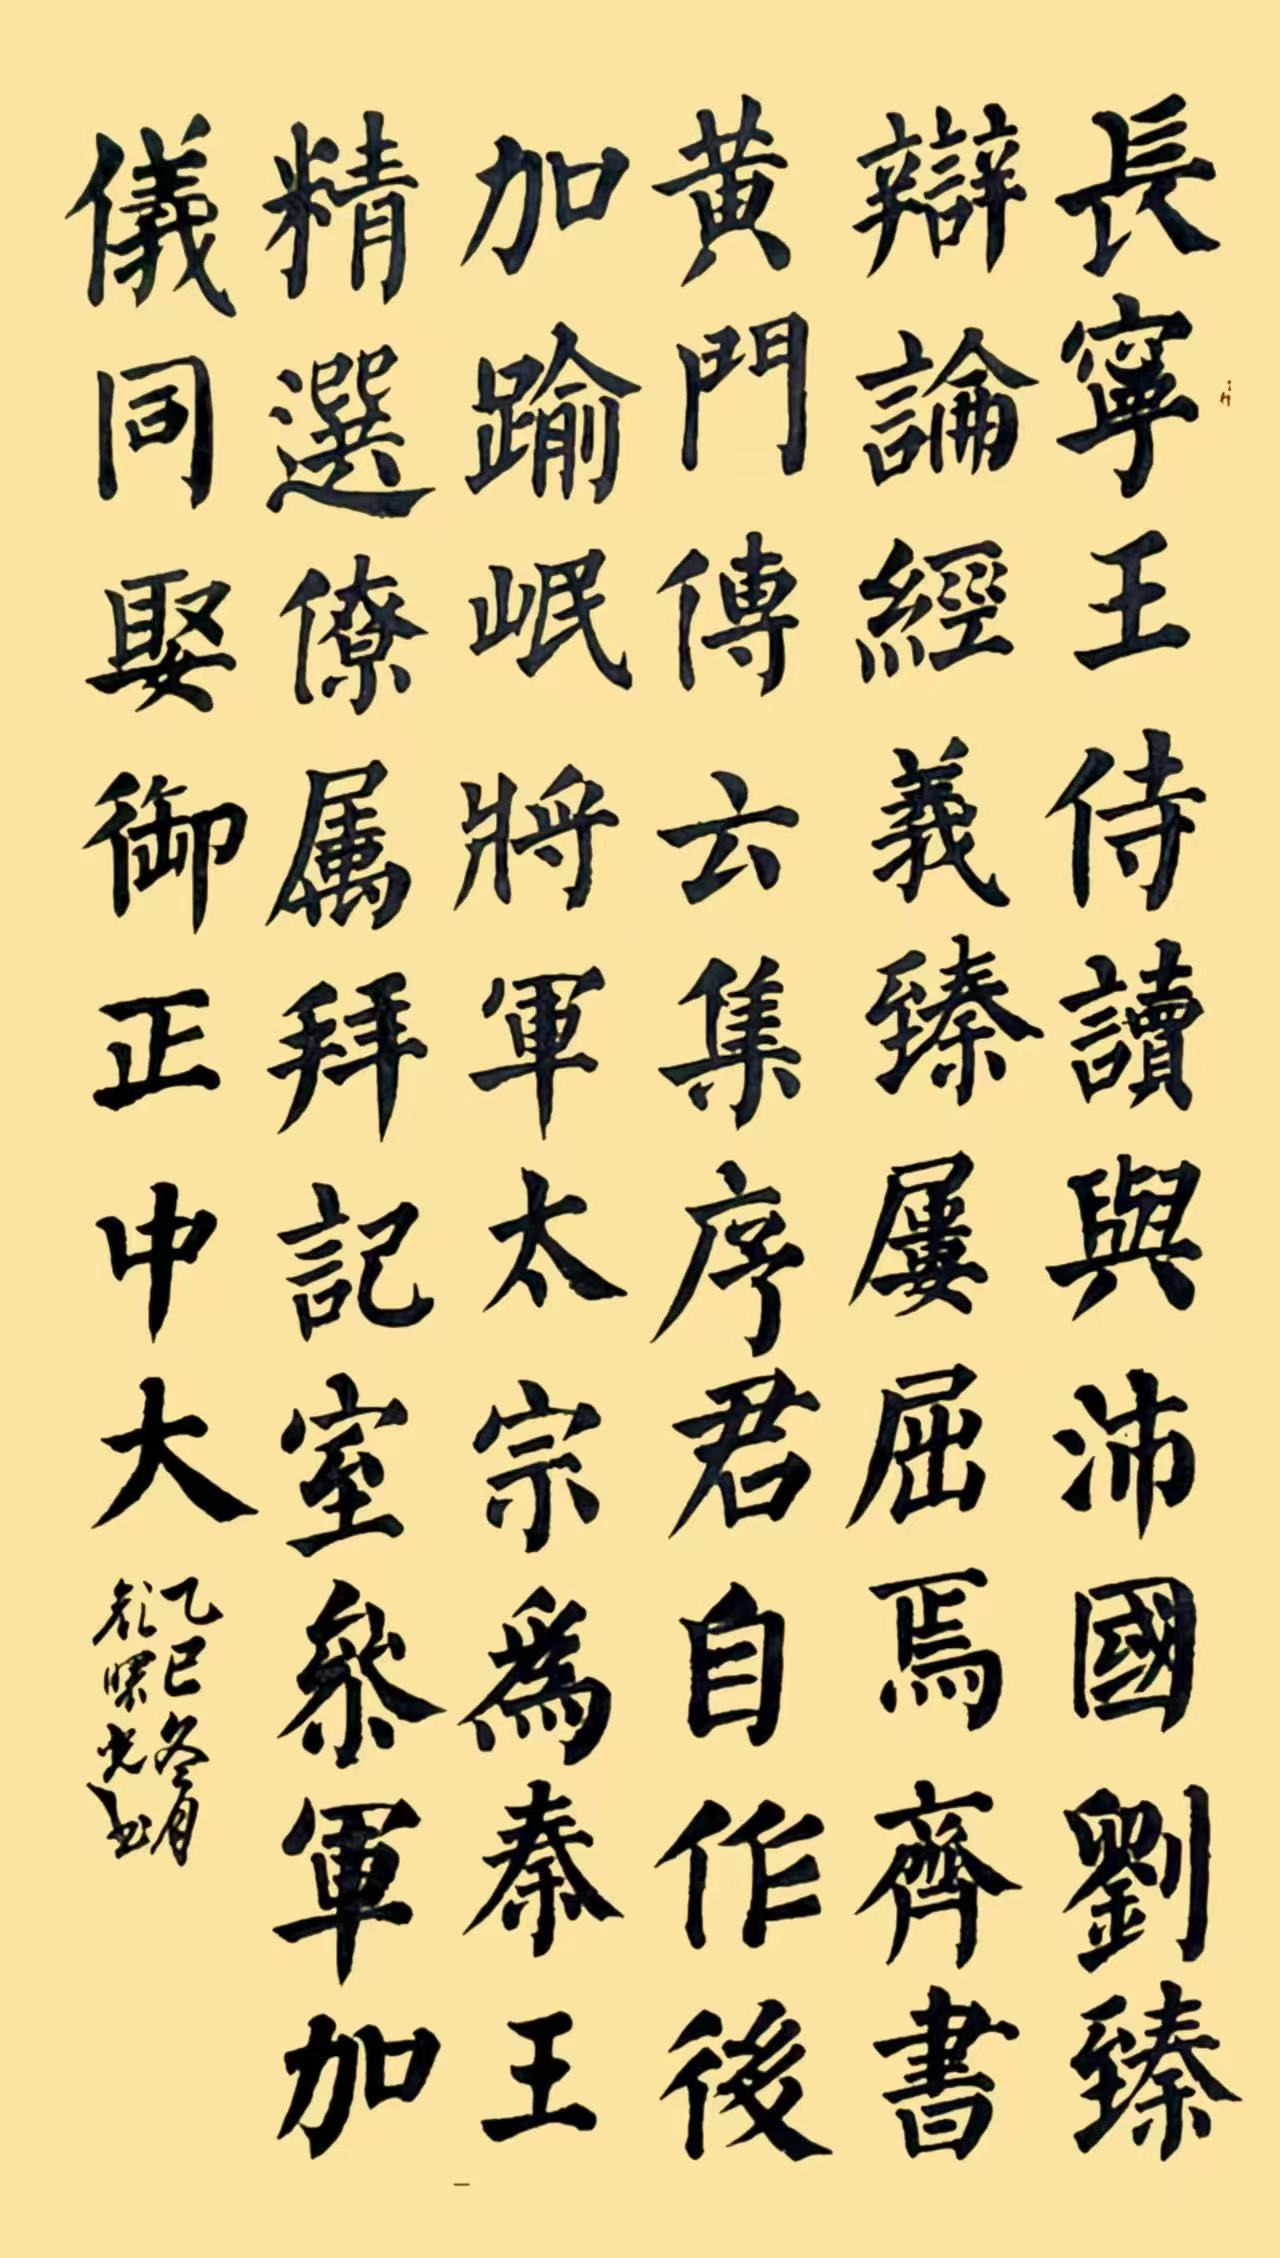 長寧王侍讀與沛國劉臻
辯論經義臻屢屈焉齊書
黄門傳云集序君自作後
加踰岷將軍太宗為秦王
精選僚属拜記室參軍加
儀同娶御正中大
乙巳冬月
光書